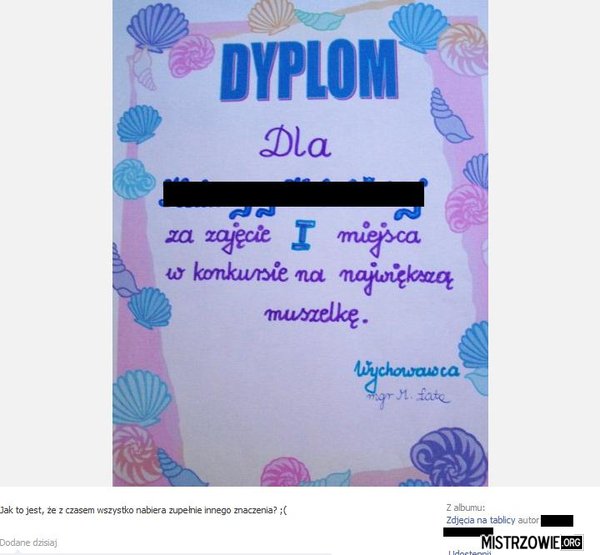 DYPLOM
Dla
za zajęcie I miejsca
w konkursie na największą
muszelkę.
Wychowawca
mgr M.
Jak to jest, że z czasem wszystko nabiera zupełnie innego znaczenia? ;(
Dodane dzisiaj
Z albumu:
Zdjęcia na tablicy autor
Udostępnij
MISTRZOWIE.ORG